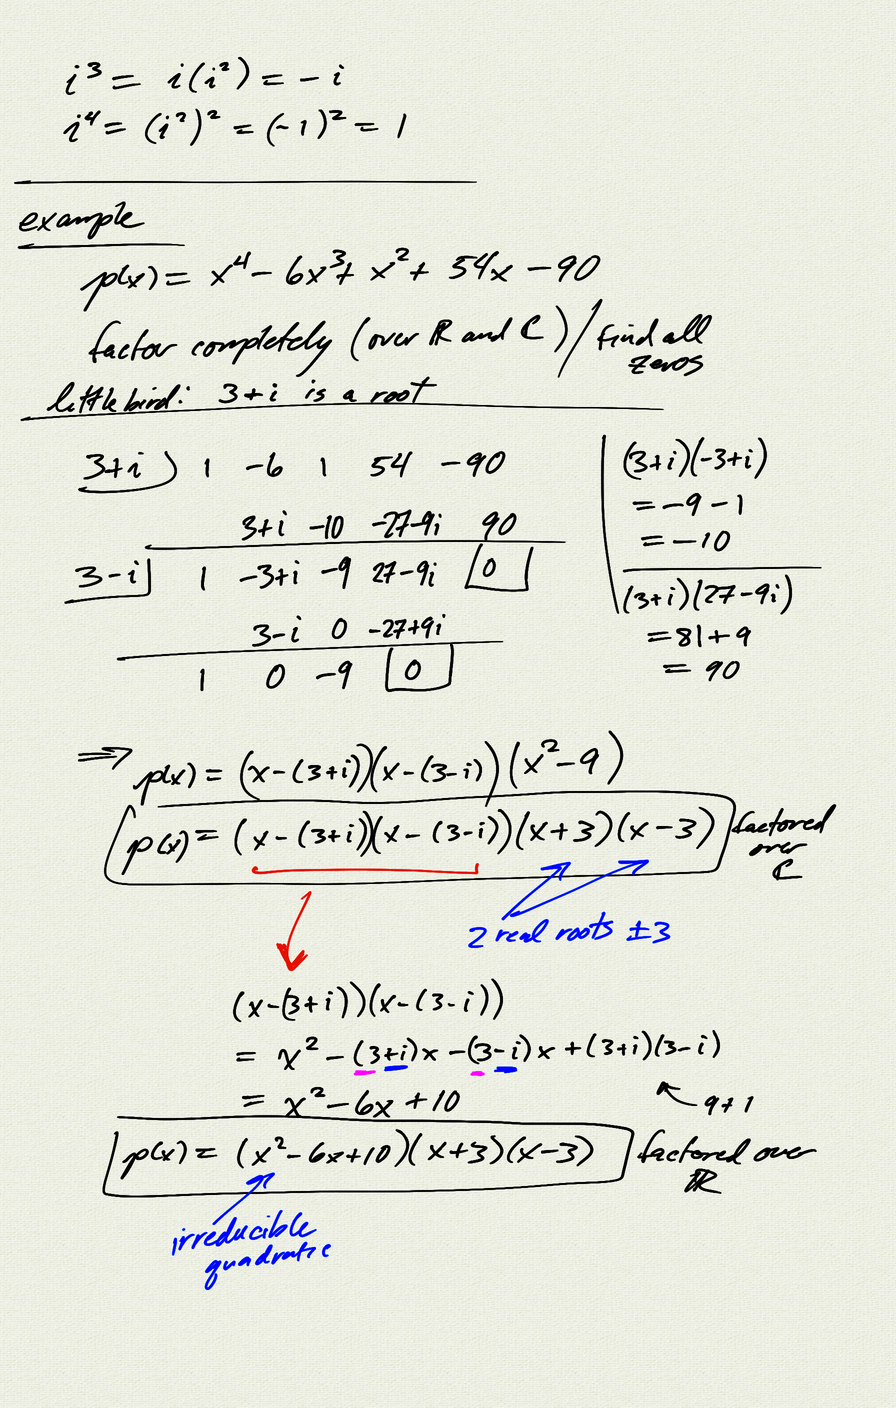 i³ = i(i²) = -i
i⁴ = (i²)² = (-1)² = 1
example
p(x) = x⁴ - 6x³ + x² + 54x - 90
factor completely (over ℝ and ℂ) / find all zeros
little bird: 3+i is a root
3+i) 1 -6 1 54 -90
3+i -10 -27-9i 90
3-i| 1 -3+i -9 27-9i 0
3-i 0 -27+9i
1 0 -9 0
(3+i)(-3+i)
= -9 - 1
= -10
(3+i)(27-9i)
= 81 + 9
= 90
⇒ p(x) = (x-(3+i))(x-(3-i))(x²-9)
p(x) = (x-(3+i))(x-(3-i))(x+3)(x-3) factored over ℂ
2 real roots ±3
(x-(3+i))(x-(3-i))
= x² - (3+i)x - (3-i)x + (3+i)(3-i)
= x² - 6x + 10
9+1
p(x) = (x²-6x+10)(x+3)(x-3) factored over ℝ
irreducible
quadratic